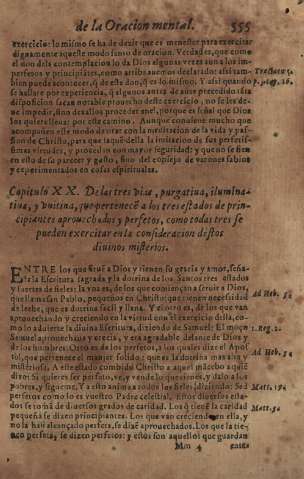 de la Oracion mental. 555
exercicio: lo mismo se ha de dezir que es menester para exercitar
dignamente aqueste modo sumo de oracion. Verdad es, que como
el don desta contemplacion lo da Dios algunas vezes aun a los im-
perfetos y principiãtes, como arriba auemos declarado: assi tam-
biẽ puede acontecer, q̃ de este don, q̃ es lo mismo. Y assi quando Tractatu 5.
se hallare por experiencia, q̃ algunos antes de auer precedido esta p. 26.
disposicion sacan notable prouecho deste exercicio, no se les de-
ue impedir,
los quiere lleuar por este camino. Aunque conuiene mucho que
acompañen este modo de orar con la meditacion de la vida y pas-
sion de Christo, para que
virtudes, y procedan con mayor seguridad: y que no se fien
en ello de su parecer y gusto, sino del consejo de varones sabios
y experimentados en cosas espirituales.
Capitulo XX. De las tres vias, purgatiua, ilumina-
tiua, y vnitiua, que pertenecẽ a los tres estados de prin-
cipiantes aprouechados y perfetos, como todas tres se
pueden exercitar en la consideracion destos
diuinos misterios.
ENTRE los que siruẽ a Dios y tienen su gracia y amor, seña-
la la Escritura sagrada y la dotrina de los Santos tres estados
y suertes de fieles: la vna es, de los que comiençan a seruir a Dios,
que llama san Pablo, pequeños en Christo: que tienen necessidad Ad Heb. 5.
de leche, que es dotrina facil y llana. Y otros es, de los que van
aprouechando y creciendo en la virtud con el exercicio della, co-
mo lo aduierte la diuina Escritura, diziendo de Samuel: El moço 1. Reg. 2.
Samuel aprouechaua y crecia, y era agradable delante de Dios y
de los hombres. Otro es de los perfetos, a los quales dize el Apos-
tol, que pertenece el manjar solido: que es la dotrina mas alta y Ad Heb. 5.
misteriosa. A este estado combidò Christo a aquel mãcebo a quiẽ
dixo: Si quieres ser perfeto, ve, y vende lo que tienes, y dalo a los
pobres, y sigueme. Y a esto anima a todos los fieles, diziendo: Sed Matt. 19.
perfetos como lo es vuestro Padre celestial. Estos diuersos esta-
dos se toman de diuersos grados de caridad. Los q̃ tienẽ la caridad Matt. 5.
pequeña se dizen principiantes. Los que van creciendo en ella, y
no la hã alcançado perfeta, se dizẽ aprouechados. Los que la tie-
nen perfeta, se dizen perfetos: y estos son aquellos que guardan
Mm 4